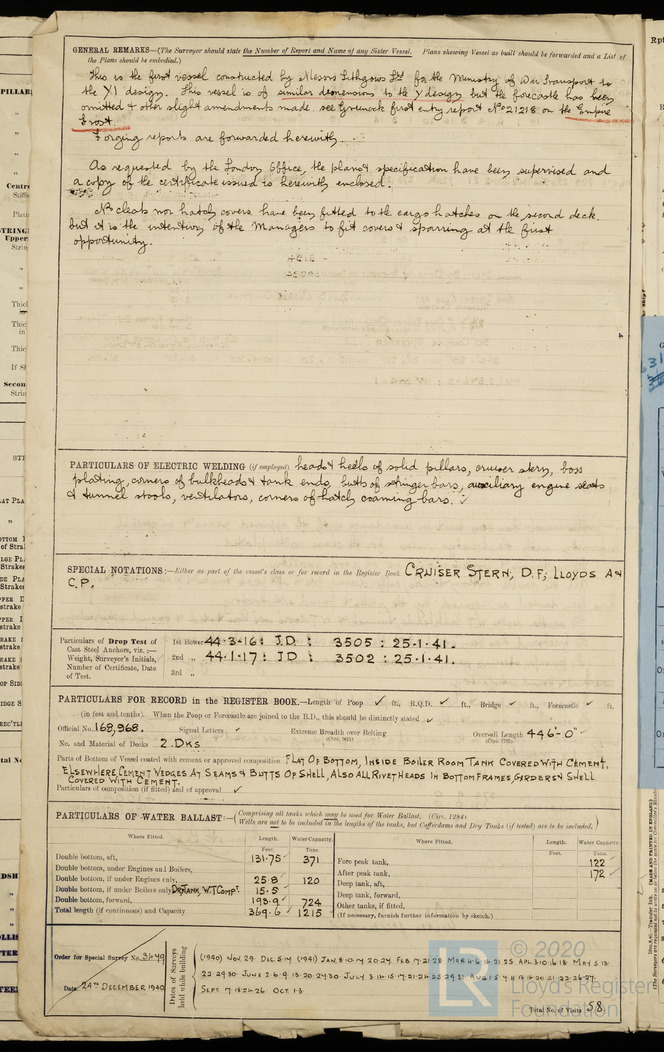 GENERAL REMARKS—(The Surveyor should state the Number of Report and Name of any Sister Vessel. Plans showing Vessel as built should be forwarded and a List of
the Plans should be embodied.)
This is the first vessel constructed by Messrs Lithgows Ltd for the Ministry of War Transport to
the Y1 design. This vessel is of similar dimensions to the Y design but the forecastle has been
omitted & other slight amendments made. see Greenock first entry report No 21218 on the Empire
Frost.
Forging reports are forwarded herewith.
As requested by the London Office, the plans & specification have been supervised and
a copy of the certificate issued is herewith enclosed.
No cleats nor hatch covers have been fitted to the cargo hatches on the second deck,
but it is the intention of the Managers to fit covers & sparring at the first
opportunity.
PARTICULARS OF ELECTRIC WELDING (if employed) heads & heels of solid pillars, cruiser stern, boss
plating, corners of bulkheads & tank ends, butts of stringer bars, auxiliary engine seats
& tunnel stools, ventilators, corners of hatch coaming bars.
SPECIAL NOTATIONS:—Either as part of the vessel's class or for record in the Register Book CRUISER STERN, D.F; LLOYDS A &
C.P.
Particulars of Drop Test of
Cast Steel Anchors, viz.:—
Weight, Surveyor's Initials,
Number of Certificate, Date
of Test.
1st Bower 44-3-16 : J.D : 3505 : 25-1-41.
2nd „ 44-1-17 : JD : 3502 : 25-1-41.
3rd „
PARTICULARS FOR RECORD in the REGISTER BOOK.—Length of Poop ✓ ft., R.Q.D. ✓ ft., Bridge ✓ ft., Forecastle ✓ ft.
(in feet and tenths). When the Poop or Forecastle are joined to the B.D., this should be distinctly stated ✓
Official No. 168,968. Signal Letters ✓ Extreme Breadth over Belting Overall Length 446'-0"
No. and Material of Decks 2. DKS
Parts of Bottom of Vessel coated with cement or approved composition FLAT OF BOTTOM, INSIDE BOILER ROOM TANK COVERED WITH CEMENT.
ELSEWHERE CEMENT WEDGES AT SEAMS & BUTTS OF SHELL, ALSO ALL RIVET HEADS IN BOTTOM FRAMES, GIRDERS & SHELL
COVERED WITH CEMENT.
Particulars of composition (if fitted) and of approval ✓
PARTICULARS OF WATER BALLAST:—(Comprising all tanks which may be used for Water Ballast. (Circ. 1284)
Wells are not to be included in the lengths of the tanks, but Cofferdams and Dry Tanks (if tested) are to be included.)
Where Fitted. Length. Water Capacity. Where Fitted. Length. Water Capacity.
Feet. Tons. Feet. Tons.
Double bottom, aft, 131.75 371
Double bottom, under Engines and Boilers,
Double bottom, if under Engines only, 25.8 120
Double bottom, if under Boilers only, DRY TANK, W.T COMPT. 15.5
Double bottom, forward, 198.9 724
Total length (if continuous) and Capacity 369.6 1215
Fore peak tank, 122
After peak tank, 172
Deep tank, aft,
Deep tank, forward,
Other tanks, if fitted,
(If necessary, furnish further information by sketch.)
Order for Special Survey No.
Date 24TH DECEMBER 1940
Dates of Surveys
held while building
(1940) NOV. 29 DEC 5.14 (1941) JAN 8.10.17.20.24. FEB 7.21.28
SEPT. 7.18.24.26. OCT. 1.3
Total No. of Visits 58
© 2020
LR
Lloyd's Register
Foundation